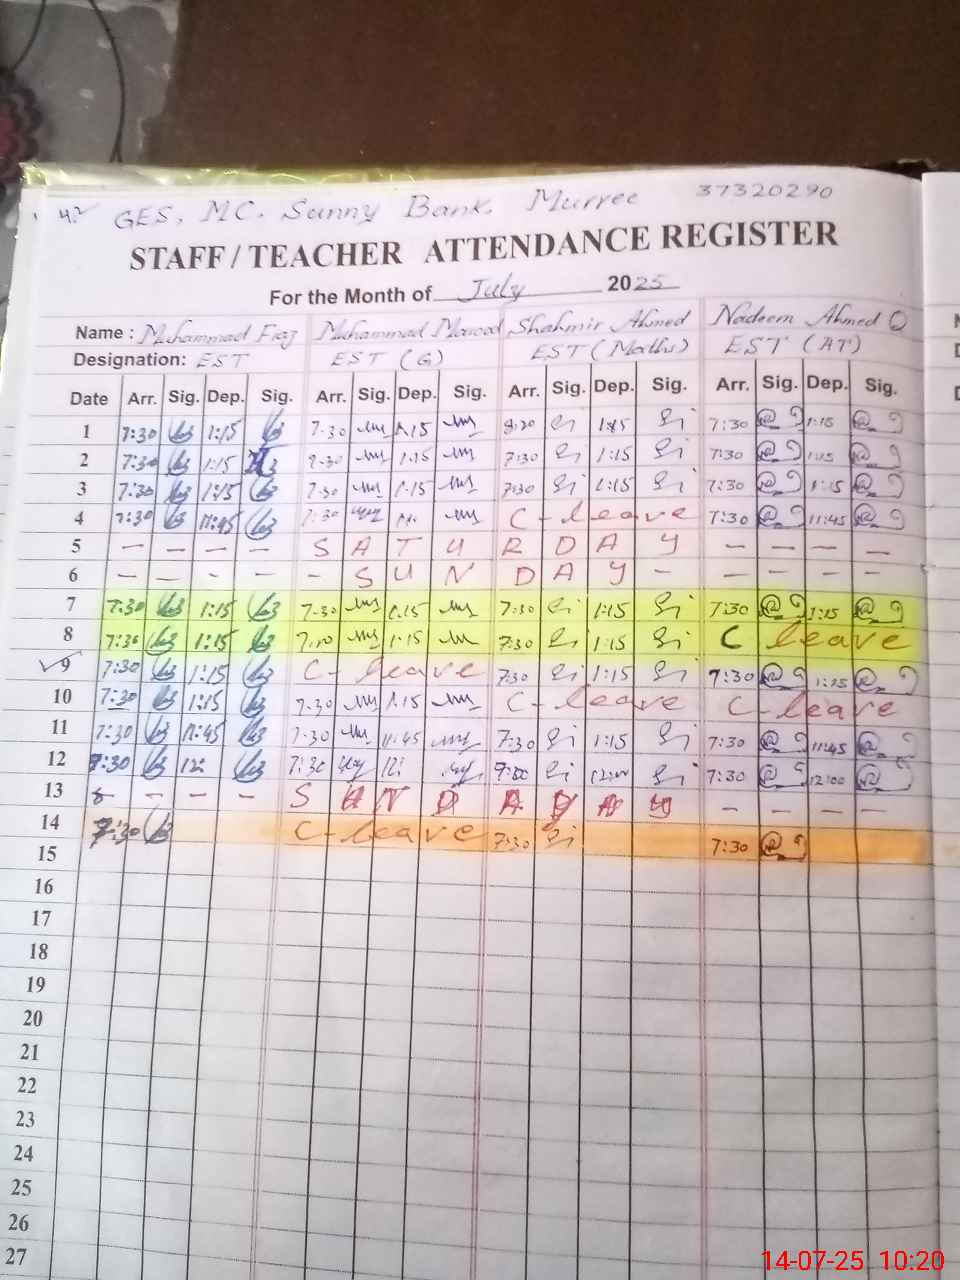 GES, MC. Sunny Bank. Murree 37320290
STAFF / TEACHER ATTENDANCE REGISTER
For the Month of July 2025
Name : Muhammad Fiaz Muhammad Shahmir Ahmed Nadeem Ahmed Q
Designation: EST EST (G) EST (Maths) EST (AT)
Date Arr. Sig. Dep. Sig. Arr. Sig. Dep. Sig. Arr. Sig. Dep. Sig. Arr. Sig. Dep. Sig.
1 7:30 1:15 7:30 1:15 1:15 7:30 1:15
2 7:30 1:15 7:30 1:15 7:30 1:15 7:30 1:15
3 7:30 1:15 7:30 1:15 7:30 1:15 7:30 1:15
4 7:30 11:45 7:30 C-leave 7:30 11:45
5 — — — — S A T U R D A Y — — — —
6 — — — — — S U N D A Y — — — — —
7 7:30 1:15 7:30 1:15 7:30 1:15 7:30 1:15
8 7:30 1:15 1:15 7:30 1:15 C leave
9 7:30 1:15 C-leave 7:30 1:15 7:30 1:15
10 7:30 1:15 7:30 1:15 C-leave C-leave
11 7:30 11:45 7:30 11:45 7:30 1:15 7:30 11:45
12 7:30 12: 7:30 12: 12:00 7:30 12:00
13 — — — S U N D A Y — — — —
14 7:30 C-leave 7:30 7:30
15
16
17
18
19
20
21
22
23
24
25
26
27
14-07-25 10:20